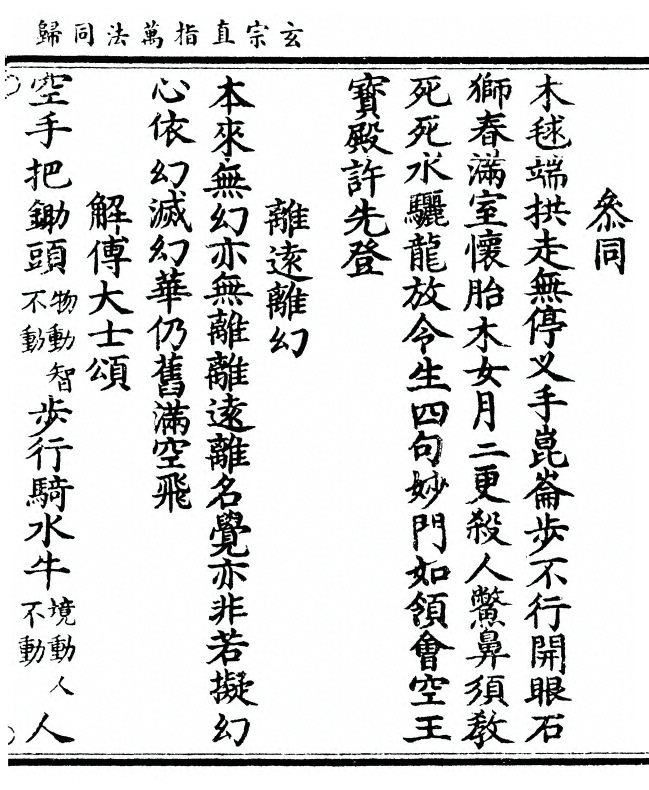 玄宗直指萬法同歸
叅同
木毬端拱走無停叉手崑崙步不行開眼石
獅春滿室懷胎木女月二更殺人鱉鼻須教
死死水驪龍放令生四句妙門如領會空王
寶殿許先登
離遠離幻
本來無幻亦無離離遠離名覺亦非若擬幻
心依幻滅幻華仍舊滿空飛
解傅大士頌
空手把鋤頭物動智不動步行騎水牛境動人不動人